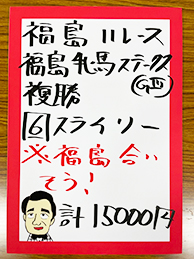 福島11レース
福島牝馬ステークス
(GⅢ)
複勝
6 スライリー
※福島合い
そう!
計15000円